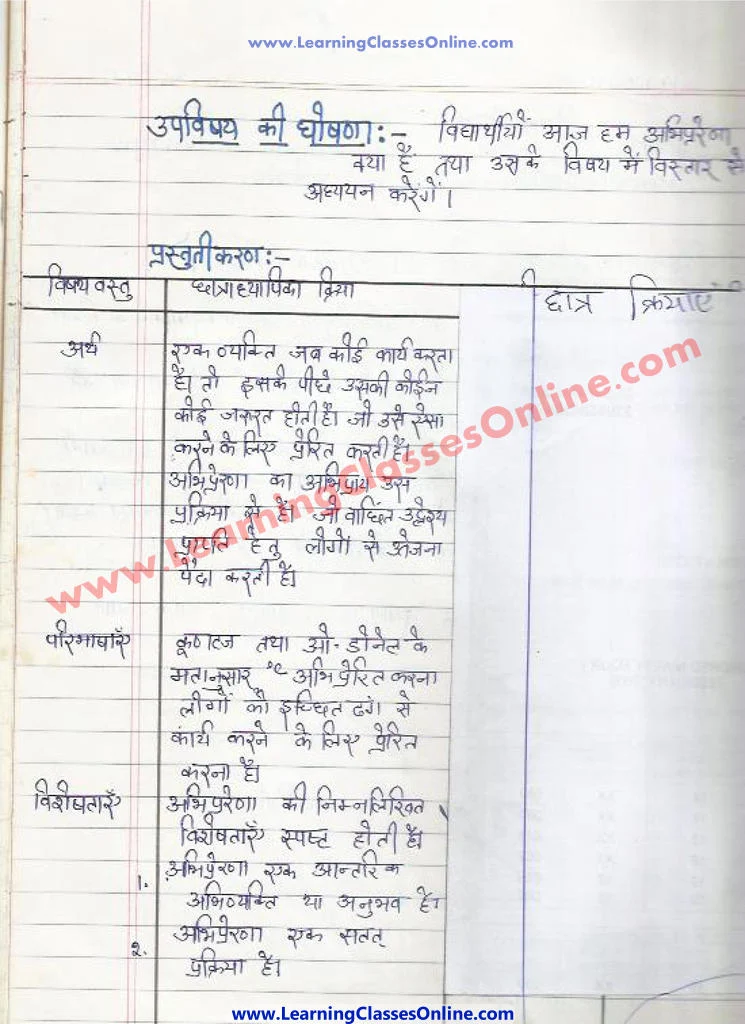 www.LearningClassesOnline.com
उपविषय की घोषणा:- विद्यार्थीयों आज हम अभिप्ररेणा
क्या है तथा उसके विषय में विस्तार से
अध्ययन करेगें।
प्रस्तुतीकरण:-
विषय वस्तु छात्राध्यापिका क्रिया छात्र क्रियाएं
अर्थ एक व्यक्ति जब कोई कार्य करता
है। तो इसके पीछे उसकी कोई न
कोई जरूरत होती है। जो उसे ऐसा
करने के लिए प्रेरित करती है।
अभिप्रेरणा का अभिप्राय उस
प्रक्रिया से है। जो वांछित उद्देश्य
हेतु लोगों से
पैदा करती है।
www.LearningClassesOnline.com
परिभाषाएँ कूणटज तथा ओ-डोनेल के
मतानुसार अभिप्रेरित करना
लोगों को इच्छित ढंग से
कार्य करने के लिए प्रेरित
करना है।
विशेषताएँ अभिप्ररेणा की निम्नलिखित
विशेषताएँ स्पष्ट होती है।
1. अभिप्रेरणा एक आन्तरिक
अभिव्यक्ति या अनुभव है।
2. अभिप्रेरणा एक सतत्
प्रक्रिया है।
www.LearningClassesOnline.com